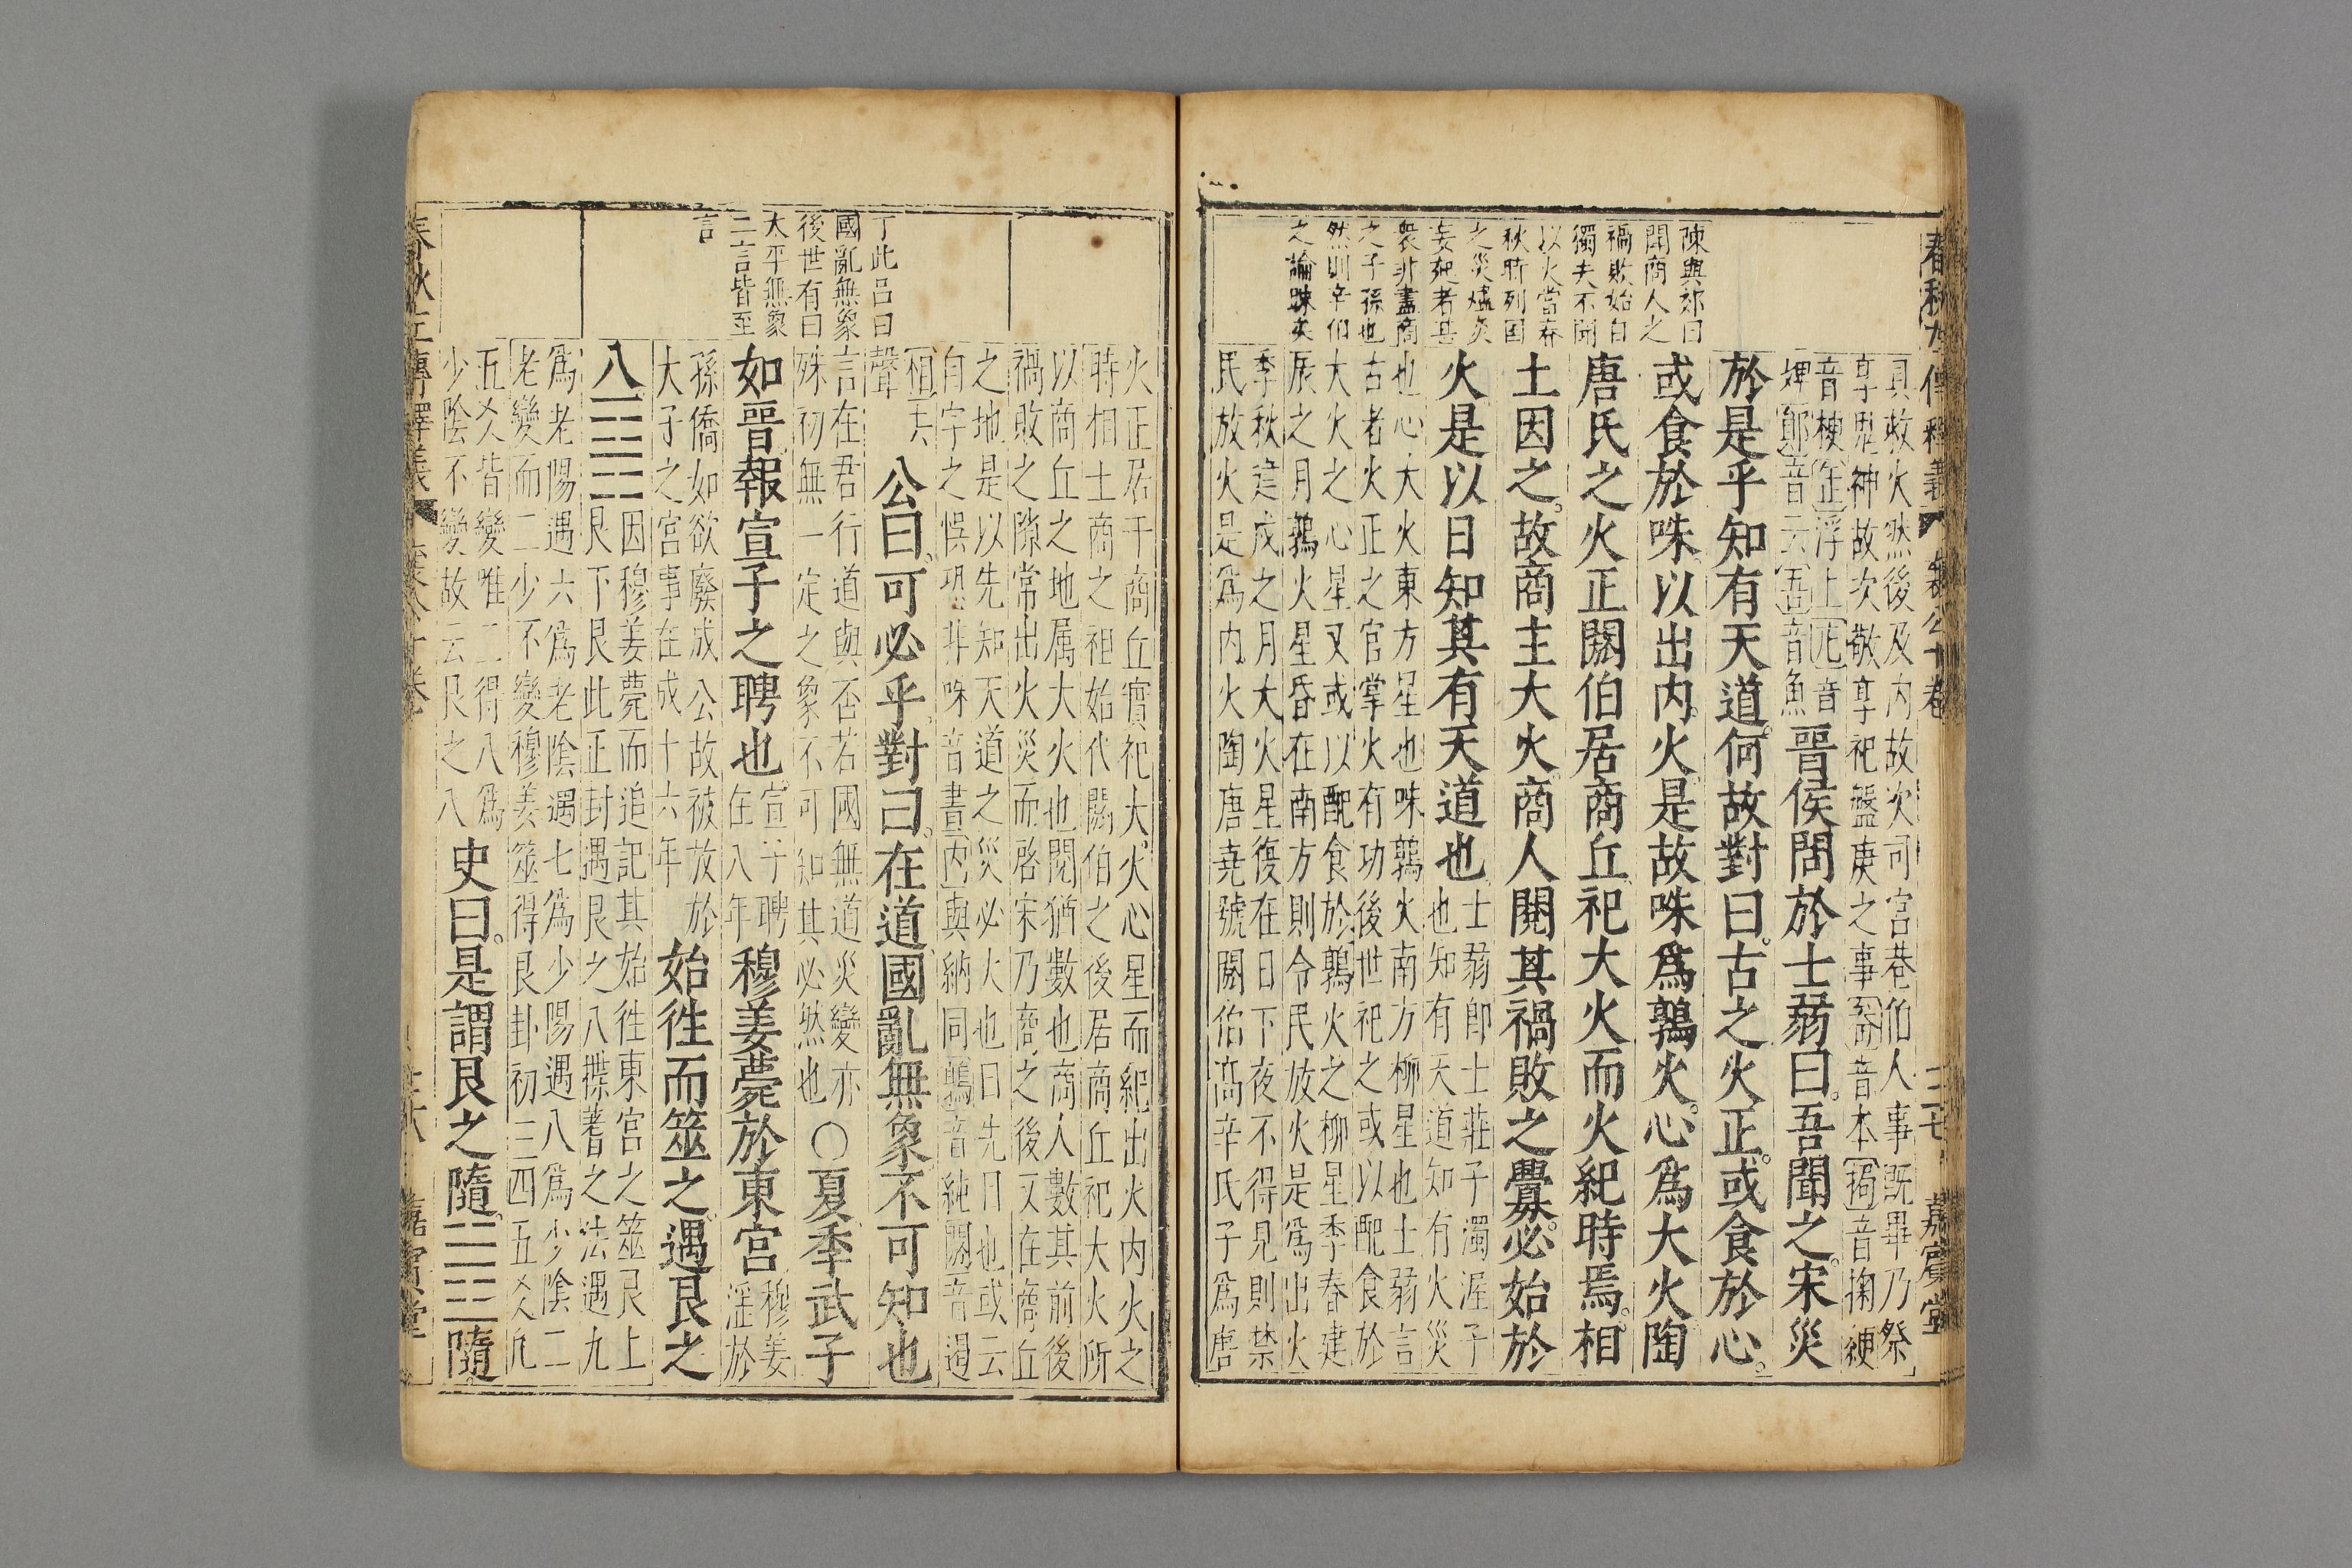 春秋左傳釋義 襄公十卷 二十七 嘉賓堂
陳與郊曰
聞商人之
禍敗始自
獨夫不聞
以火當春
秋時列国
之災
妄起者甚
衆非盡商
之子孫也
然則
之論踈矣
具救火然後及內故次司宮巷伯人事既畢乃祭
享鬼神故次敬享祀盤庚之事畚音本挶音掬綆
音梗 正浮上 音
婢郹音云吾音魚
晉侯問於士弱曰吾聞之宋災
於是乎知有天道何故對曰古之火正或食於心
或食於咮以出內火是故咮爲鶉火心爲大火陶
唐氏之火正閼伯居商丘祀大火而火紀時焉相
土因之故商主大火商人閱其禍敗之釁必始於
火是以日知其有天道也
士弱卽士莊子濁渥子
也知有天道知有火災
也心大火東方星也咮鶉火南方柳星也士弱言
古者火正之官掌火有功後世祀之或以配食於
大火之心星又或以配食於鶉火之柳星季春建
辰之月鶉火星昏在南方則令民放火是爲出火
季秋建戌之月大火星復在日下夜不得見則禁
民放火是爲內火陶唐堯號閼伯高辛氏子爲唐
火正居于商丘實祀大火心星而紀出火內火之
時相土商之祖始代閼伯之後居商丘祀大火所
以商丘之地属大火也閱猶數也商人數其前後
禍敗之隙常出火災而啓宋乃商之後又在商丘
之地是以先知天道之災必火也曰先日也或云
自字之悞恐非咮音晝內與納同鶉音純閼音遏
相去
聲
丁此吕曰
國亂無象
後世有曰
太平無象
二言皆至
言
公曰可必乎對曰在道國亂無象不可知也
言在君行道與否若國無道災變亦
殊初無一定之象不可知其必然也
○夏季武子
如晉報宣子之聘也
宣子聘
在八年
穆姜薨於東宮
穆姜
淫於
孫僑如欲廢成公故被放於
大子之宮事在成十六年
始徃而筮之遇艮之
八
因穆姜薨而追記其始徃東宮之筮艮上
艮下艮此正封遇艮之八揲蓍之法遇九
爲老陽遇六爲老陰遇七爲少陽遇八爲少陰二
老變而二少不變穆姜筮得艮卦初三四五爻凡
五爻皆變唯二得八爲
少陰不變故云艮之八
史曰是謂艮之隨
隨
春秋左傳釋義 襄公十卷 二十八 嘉賓堂